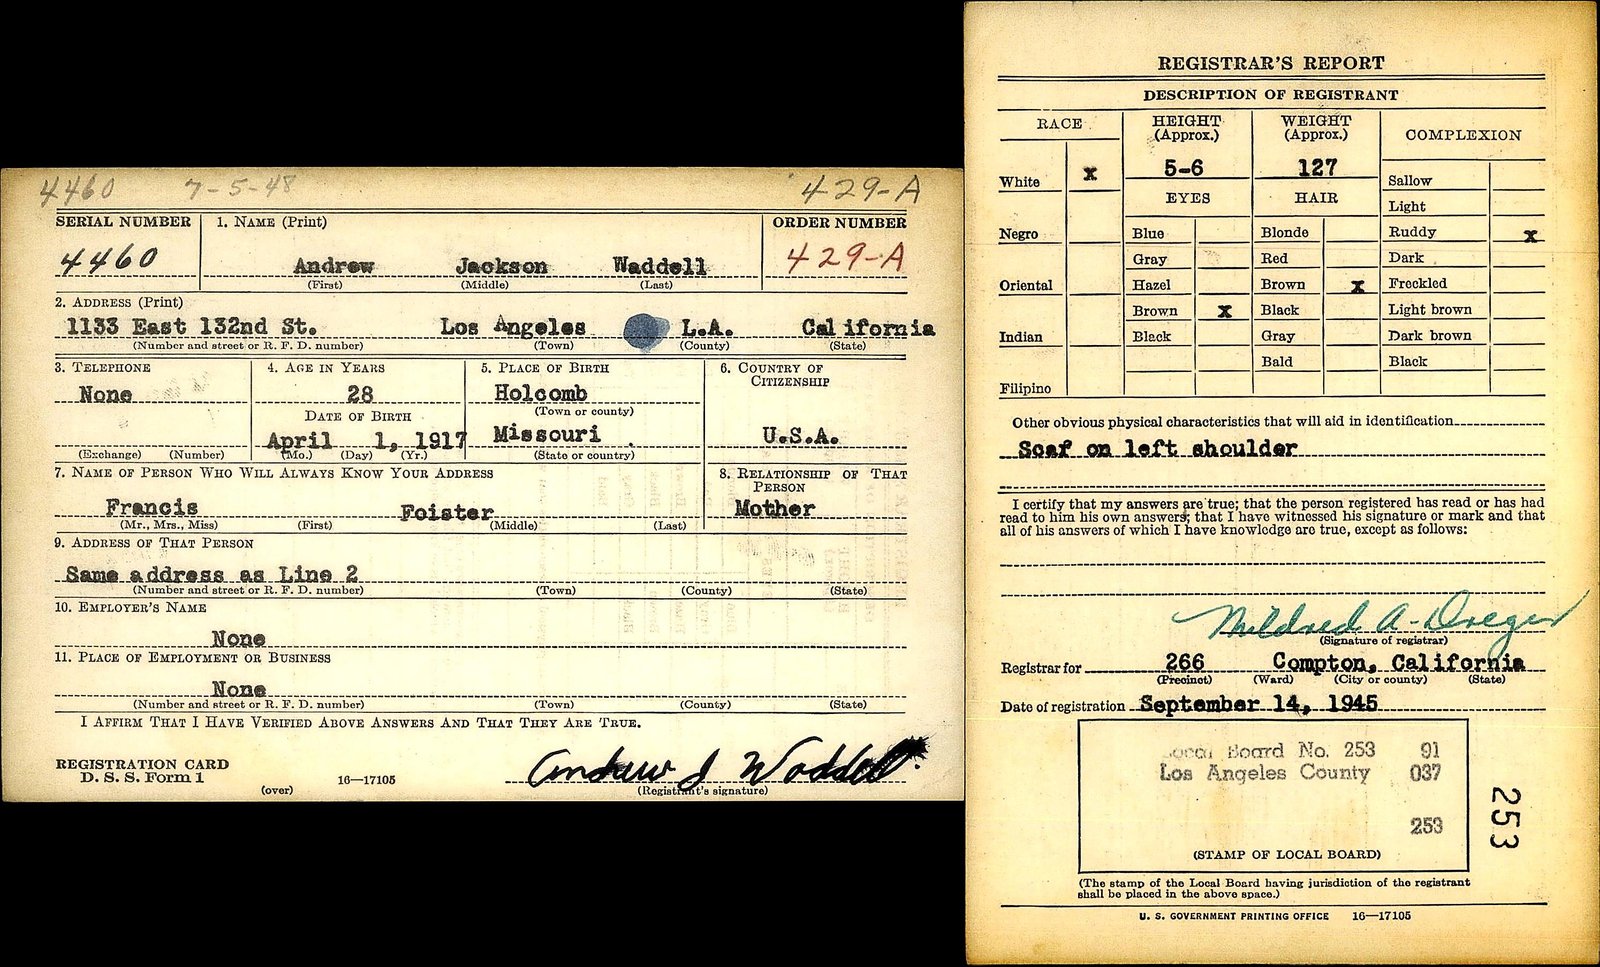 4460 7-5-48 429-A
SERIAL NUMBER 1. NAME (Print) ORDER NUMBER
4460 Andrew Jackson Waddell 429-A
(First) (Middle) (Last)
2. ADDRESS (Print)
1133 East 132nd St. Los Angeles L.A. California
(Number and street or R. F. D. number) (Town) (County) (State)
3. TELEPHONE 4. AGE IN YEARS 5. PLACE OF BIRTH 6. COUNTRY OF CITIZENSHIP
None 28 Holcomb
(Town or county)
DATE OF BIRTH
April 1, 1917 Missouri U.S.A.
(Exchange) (Number) (Mo.) (Day) (Yr.) (State or country)
7. NAME OF PERSON WHO WILL ALWAYS KNOW YOUR ADDRESS 8. RELATIONSHIP OF THAT PERSON
Francis Foister Mother
(Mr., Mrs., Miss) (First) (Middle) (Last)
9. ADDRESS OF THAT PERSON
Same address as Line 2
(Number and street or R. F. D. number) (Town) (County) (State)
10. EMPLOYER'S NAME
None
11. PLACE OF EMPLOYMENT OR BUSINESS
None
(Number and street or R. F. D. number) (Town) (County) (State)
I AFFIRM THAT I HAVE VERIFIED ABOVE ANSWERS AND THAT THEY ARE TRUE.
REGISTRATION CARD
D. S. S. Form 1 16—17105 Andrew J Waddell
(over) (Registrant's signature)
REGISTRAR'S REPORT
DESCRIPTION OF REGISTRANT
RACE HEIGHT (Approx.) WEIGHT (Approx.) COMPLEXION
White x 5-6 127 Sallow
EYES HAIR Light
Negro Blue Blonde Ruddy x
Gray Red Dark
Oriental Hazel Brown x Freckled
Brown x Black Light brown
Indian Black Gray Dark brown
Bald Black
Filipino
Other obvious physical characteristics that will aid in identification
Scar on left shoulder
I certify that my answers are true; that the person registered has read or has had
read to him his own answers; that I have witnessed his signature or mark and that
all of his answers of which I have knowledge are true, except as follows:
Mildred A. Dreger
(Signature of registrar)
Registrar for 266 Compton, California
(Precinct) (Ward) (City or county) (State)
Date of registration September 14, 1945
Local Board No. 253 91
Los Angeles County 037
253
253
(STAMP OF LOCAL BOARD)
(The stamp of the Local Board having jurisdiction of the registrant
shall be placed in the above space.)
U. S. GOVERNMENT PRINTING OFFICE 16—17105